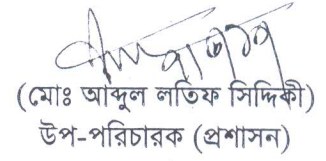 (মোঃ আব্দুল লতিফ সিদ্দিকী)
উপ-পরিচারক (প্রশাসন)